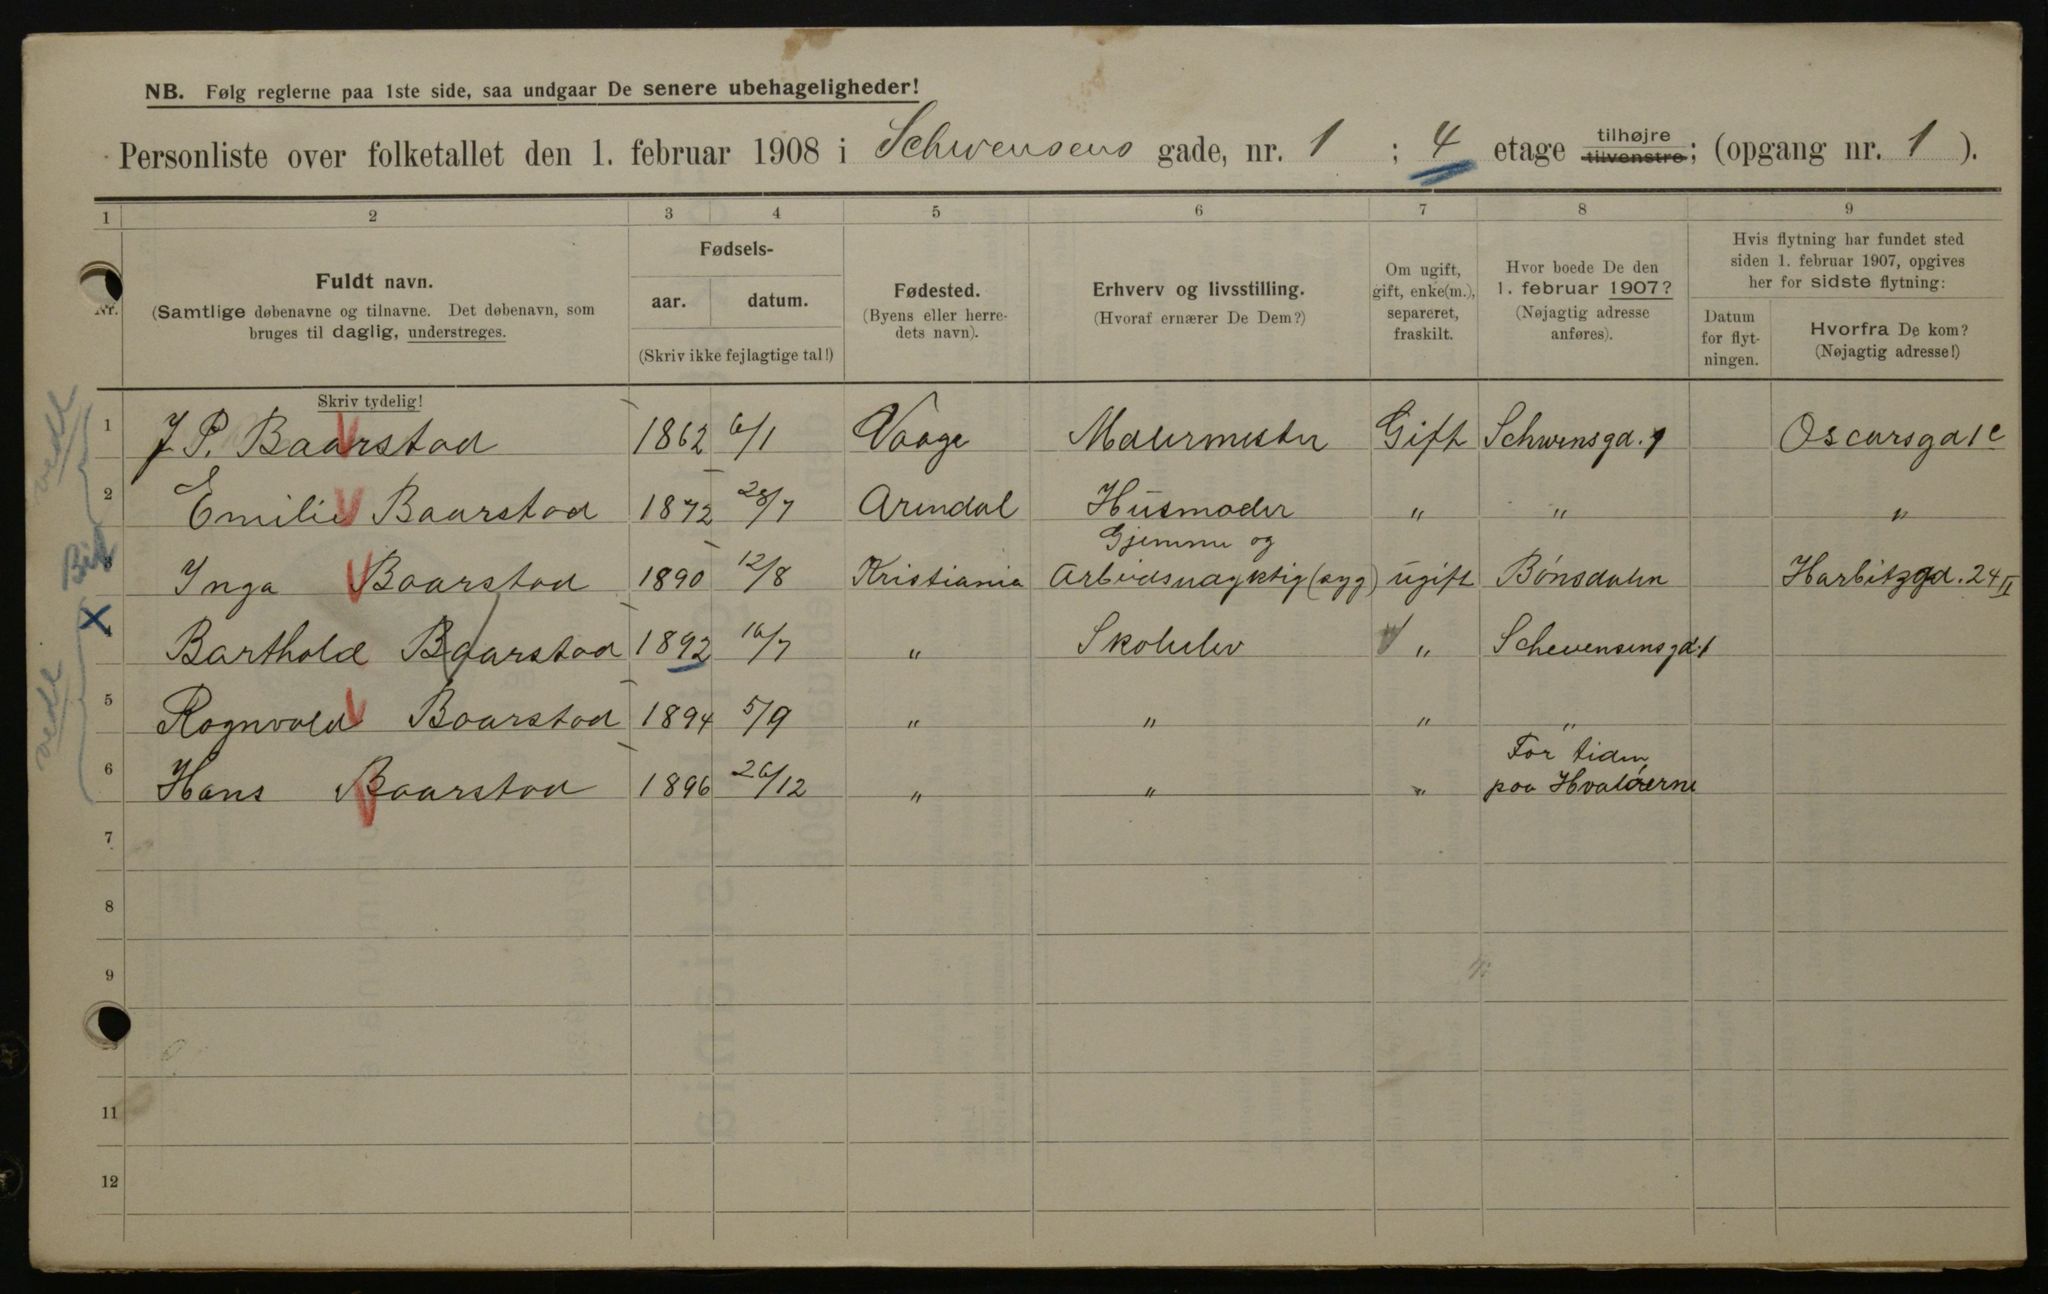 NB. Følg reglerne paa 1ste side, saa undgaar De senere ubehageligheder!
Personliste over folketallet den 1. februar 1908 i Schwensens gade, nr. 1 ; 4 etage tilhøjre tilvenstre; (opgang nr. 1 ).
1 2 3 4 5 6 7 8 9
Nr.
Fuldt navn.
(Samtlige døbenavne og tilnavne. Det døbenavn, som
bruges til daglig, understreges.
Skriv tydelig!
Fødsels-
aar. datum.
(Skriv ikke fejlagtige tal!)
Fødested.
(Byens eller herre-
dets navn).
Erhverv og livsstilling.
(Hvoraf ernærer De Dem?)
Om ugift,
gift, enke(m.),
separeret,
fraskilt.
Hvor boede De den
1. februar 1907?
(Nøjagtig adresse
anføres).
Hvis flytning har fundet sted
siden 1. februar 1907, opgives
her for sidste flytning:
Datum
for flyt-
ningen.
Hvorfra De kom?
(Nøjagtig adresse!)
1 J P. Baarstad 1862 6/1 Vaage Murmester Gift Schwensgd. 1 Oscarsgd 1 c
2 Emilie Baarstad 1872 28/7 Arendal Husmoder " " "
Gjemme og
3 Inga Baarstad 1890 12/8 Kristiania Arbeidsuagktig (syg) ugift Bønsdalen Harbitzgd. 24 II
4 Barthold Baarstad 1892 16/7 " Skoleelev " Schevensensgd. 1
5 Ragnvald Baarstad 1894 5/9 " " " "
For tiden
6 Hans Baarstad 1896 26/12 " " " paa Hvaløerne
7
8
9
11
12